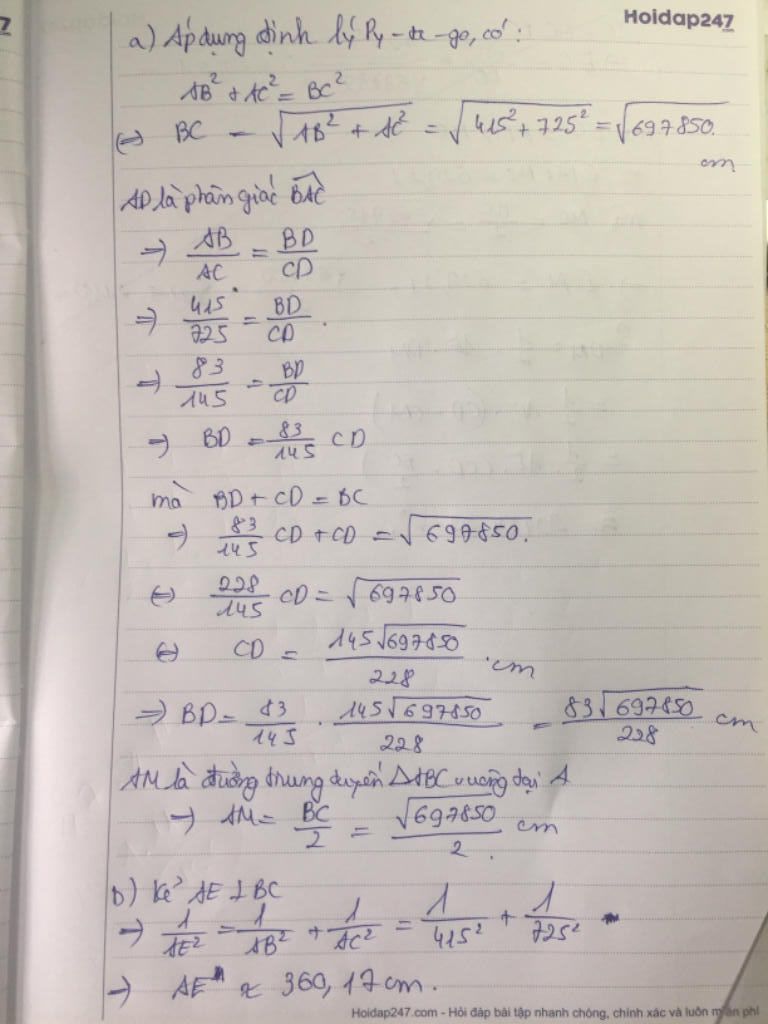 7
Hoidap247
a) Áp dụng định lý Py-ta-go, có:
AB² + AC² = BC²
(=) BC = √(AB² + AC²) = √(415² + 725²) = √697850 cm
AD là phân giác BAC
=) AB/AC = BD/CD
=) 415/725 = BD/CD.
=) 83/145 = BD/CD
=) BD = 83/145 CD
mà BD + CD = BC
=) 83/145 CD + CD = √697850.
(=) 228/145 CD = √697850
(=) CD = 145√697850/228 cm
=) BD = 83/145 . 145√697850/228 = 83√697850/228 cm
AM là đường trung tuyến △ABC vuông tại A
=) AM = BC/2 = √697850/2 cm
b) Kẻ AE ⊥ BC
=) 1/AE² = 1/AB² + 1/AC² = 1/415² + 1/725²
=) AE ≈ 360,17 cm.
Hoidap247.com - Hỏi đáp bài tập nhanh chóng, chính xác và luôn miễn phí